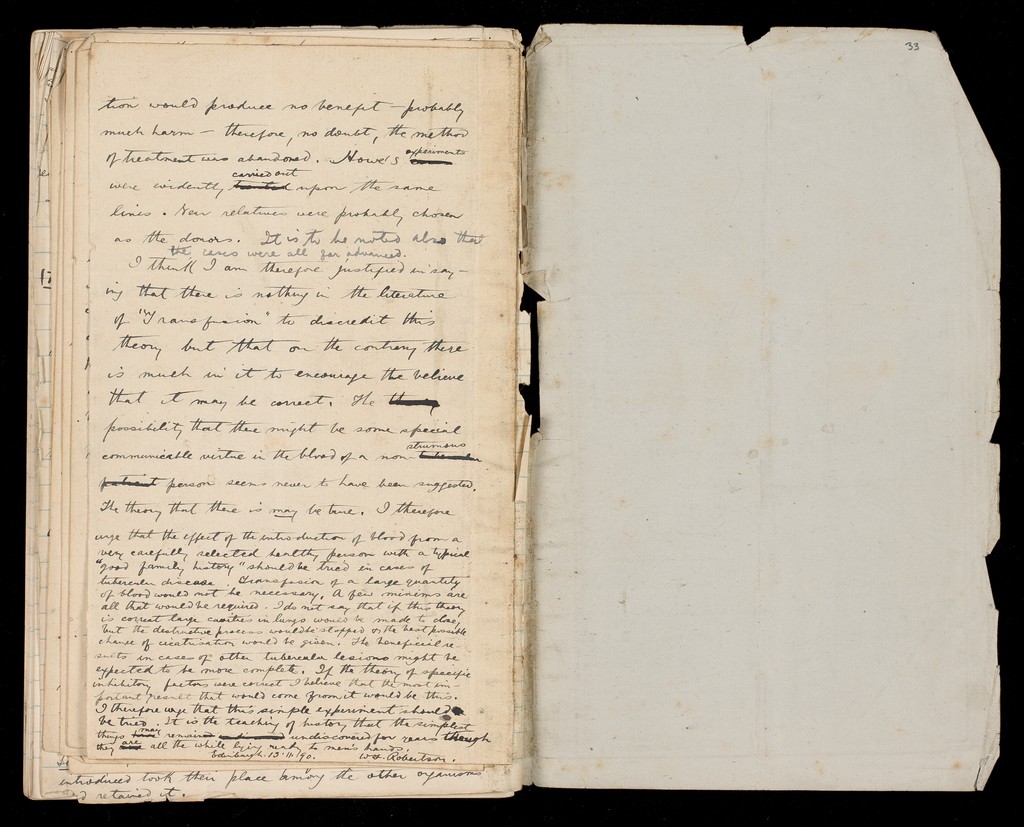 tion would produce no benefit — probably
much harm — therefore, no doubt, the method
of treatment was abandoned. Howe's experiments
were evidently carried out upon the same
lines. Near relatives were probably chosen
as the donors. It is to be noted also that
the cases were all far advanced.
I think I am therefore justified in say-
ing that there is nothing in the literature
of "Transfusion" to discredit this
theory but that on the contrary there
is much in it to encourage the believe
that it may be correct. The
possibility that there might be some special
communicable virtue in the blood of a non-strumous
patient person seems never to have been suggested.
The theory that there is may be true. I therefore
urge that the effect of the introduction of blood from a
very carefully selected healthy person with a typical
"good family history" should be tried in cases of
tubercular disease. Transfusion of a large quantity
of blood would not be necessary. A few minims are
all that would be required. I do not say that if this theory
is correct large cavities in lungs would be made to close,
but the destructive process would be stopped & the best possible
chance of cicatrisation would be given. The beneficial re-
sults in cases of other tubercular lesions might be
expected to be more complete. If the theory of specific
inhibitory factors were correct I believe that the most im-
portant result that would come from it would be this.
I therefore urge that this simple experiment should
be tried. It is the teaching of history that the simplest
things may remain undiscovered for years though
they are all the while lying ready to man's hands.
Edinburgh. 13.11.90. W. F. Robertson.
introduced took their place among the other organisms
and retained it.
33